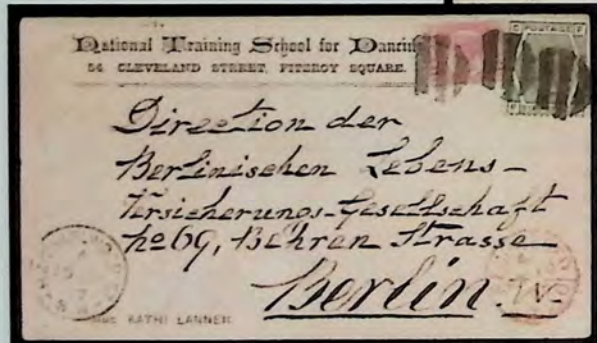 National Training School for Dancing
54 CLEVELAND STREET, FITZROY SQUARE.
POSTAGE
Direction der
Berlinischen Lebens-
Versicherungs-Gesellschaft
no 69, Behren Strasse
Berlin. W.
KATHI LANNER